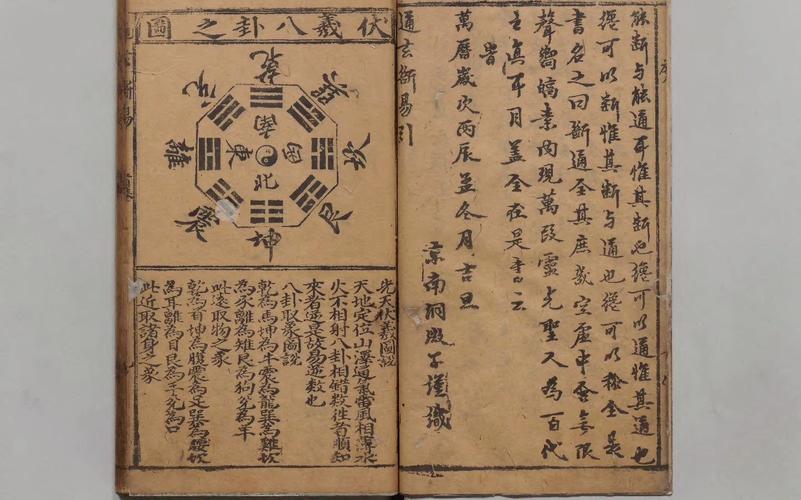 能斷与能通耳惟其斷也纔可以通惟其通也
纔可以斷惟其斷与通也纔可以稱全是
書名之曰斷通全其庶幾空虛中發無限
聲嚮縞素內現萬段靈光聖人為百代
之真耳目蓋全在是書云
旹
萬曆歲次丙辰孟冬月吉旦
京南洞子謹識
通玄斷易引
伏羲八卦之圖
乾
兌
巽
離
坎
震
艮
坤
南
東
西
北
先天伏羲圖說
天地定位山澤通氣雷風相薄水
火不相射八卦相錯数徃者順知
來者逆是故易逆数也
八卦取象圖說
乾為馬坤為牛震為龍巽為雞坎
為豕離為雉艮為狗兌為羊
此遠取物之象
乾為首坤為腹震為足巽為腰坎
為耳離為目艮為手兌為口
此近取諸身之象